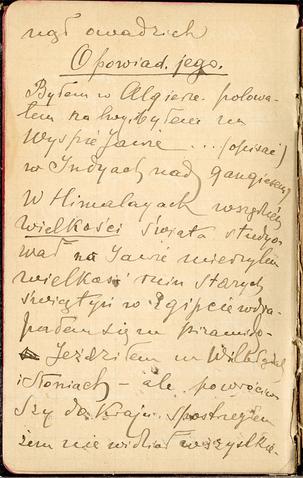 nęł owadzich
Opowiad. jego.
Byłem w Algierze. polowa-
łem na lwy. byłem na
Wyspie Jawie ... (opisać)
w Indyach nad gangiesem,
W Himalayach wszędzie
wielkości świata studyo-
wał na Jawie mierzyłem
wielkość ruin starych
świątyń w Egipcie wdra-
pałem się na piramidę
Jeździłem na Wielbłądach
i słoniach - ale powróciw
szy do kraju spostrzegłem
żem nie widział wszystkie-